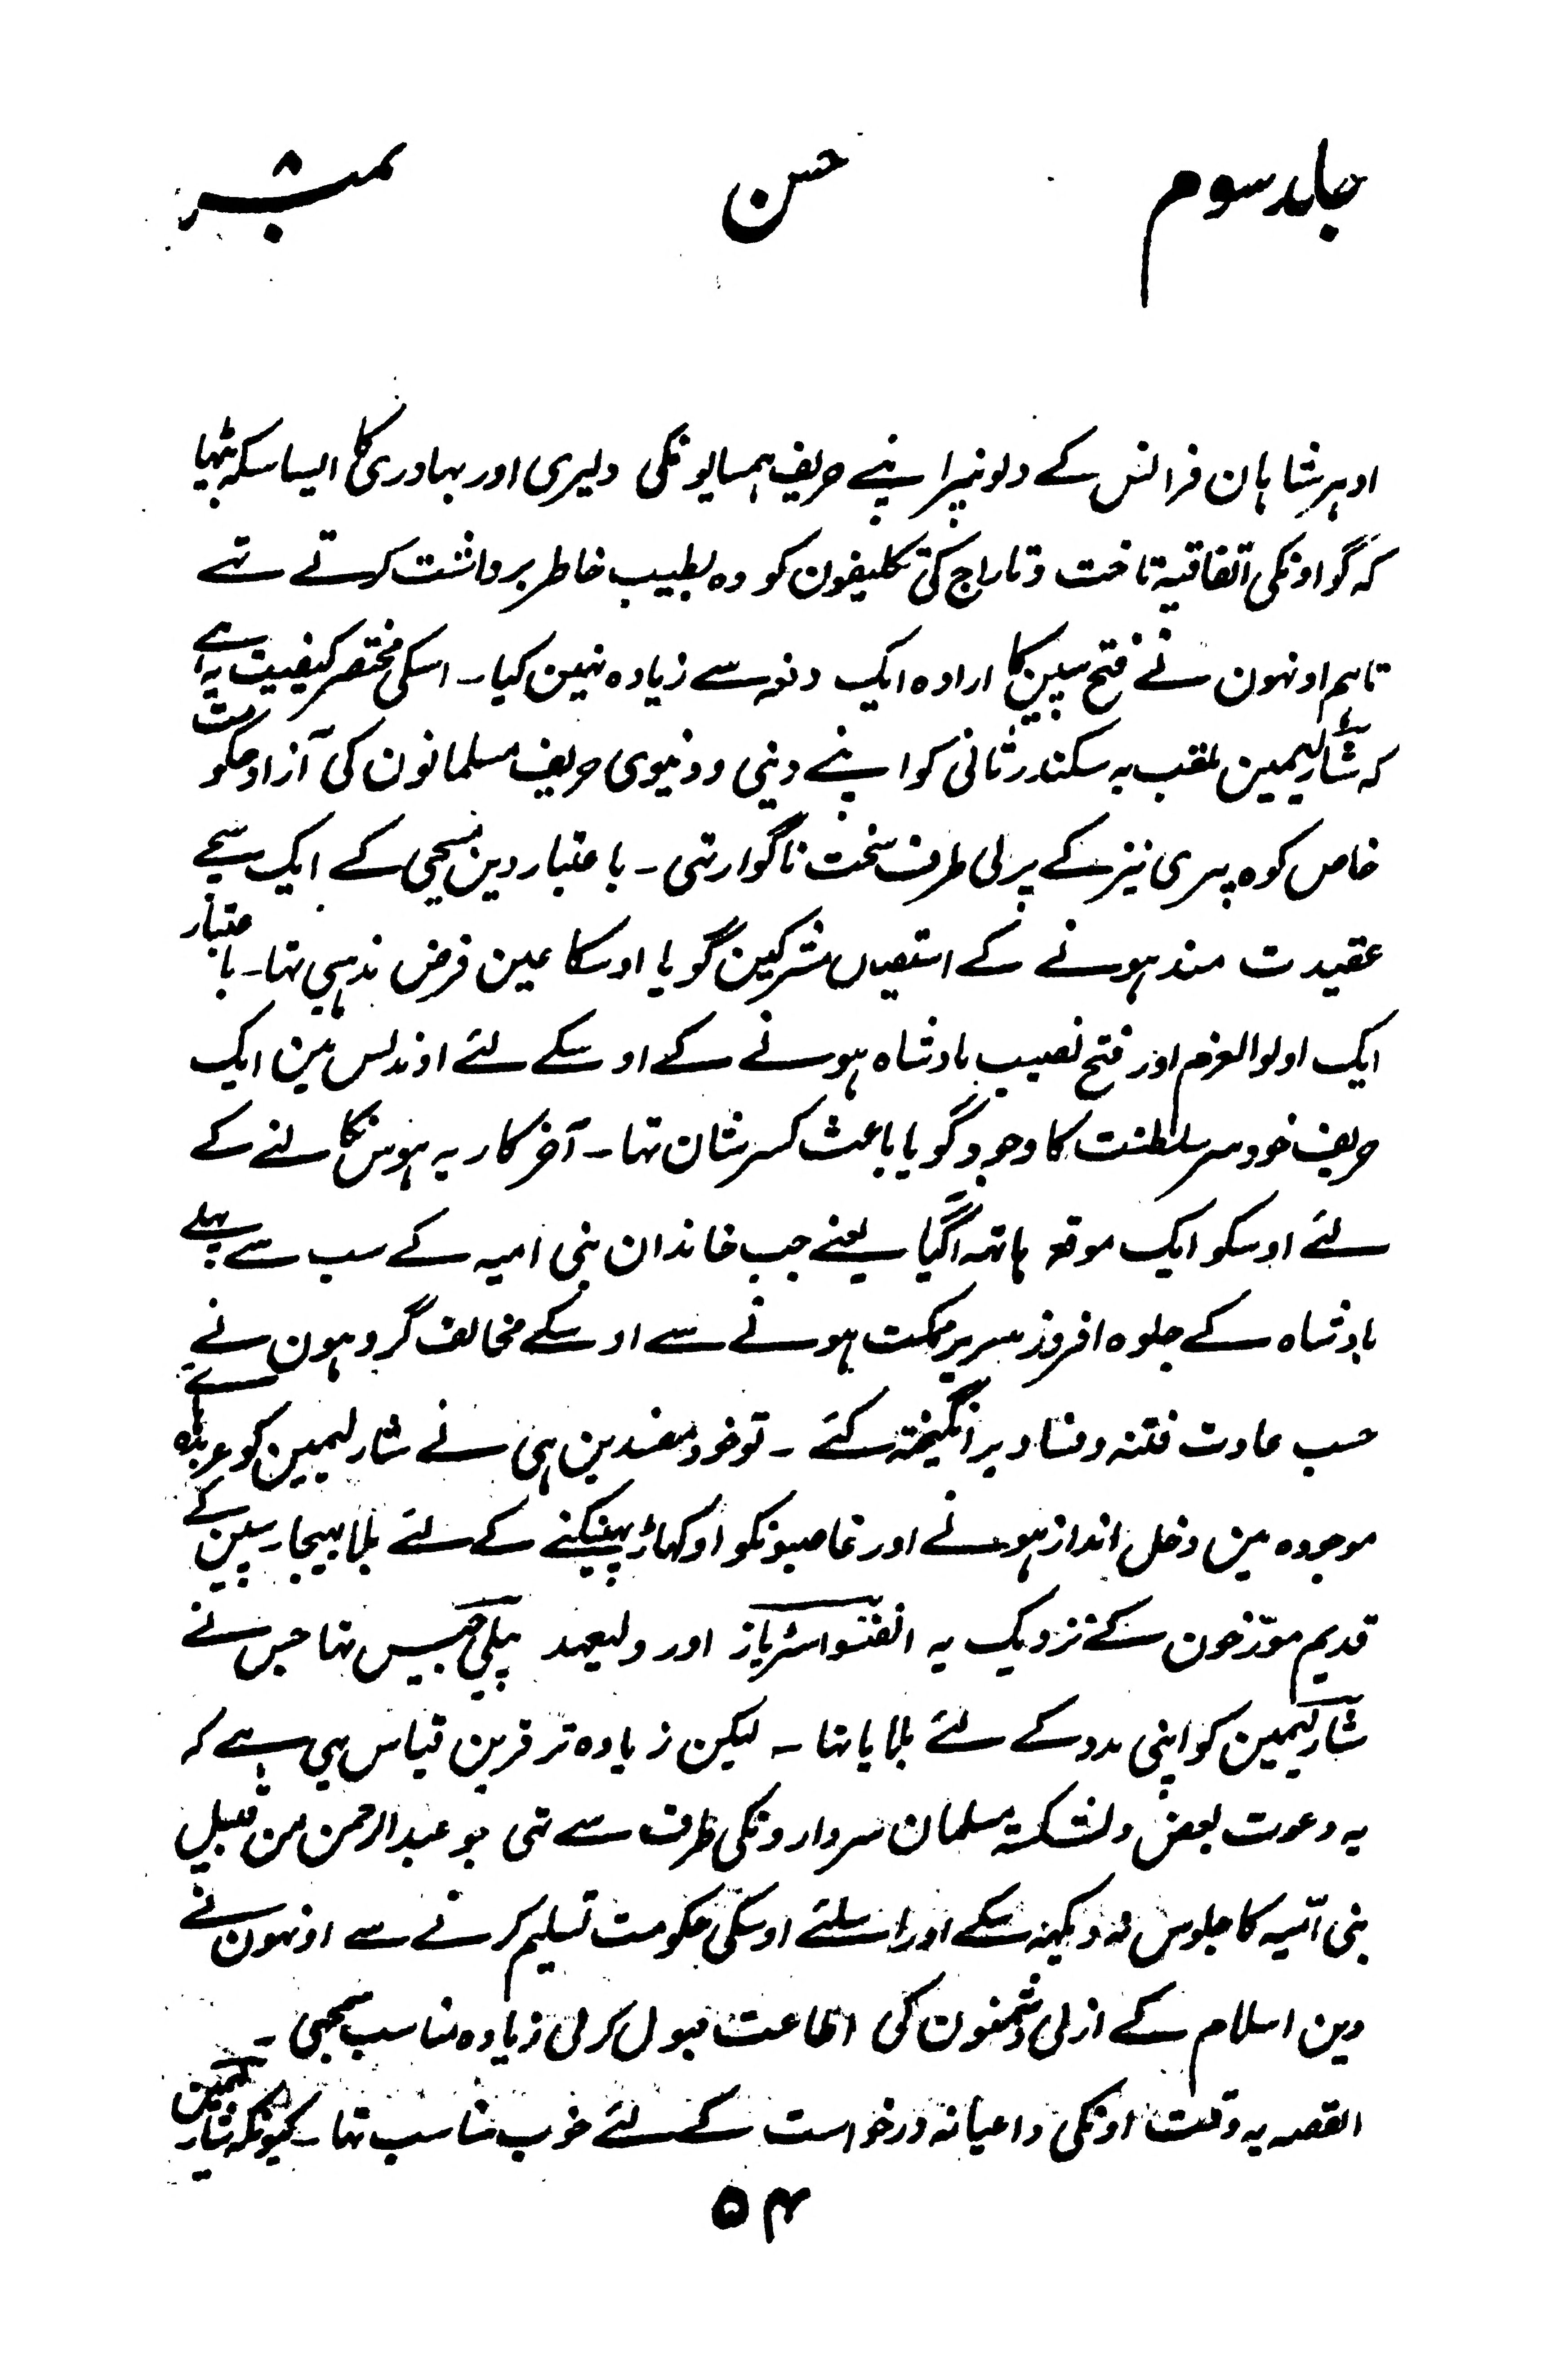 جلد سوم
حسن
نمبر ۸
اودہر شاہان فرانس کے دلونپر اپنے حریف ہمسایونکی دلیری اور بہادری کا ایسا سکہ بٹھیا
کہ گو اونکی اتفاقیہ تاخت و تاراج کی تکلیفون کو وہ بطیب خاطر برداشت کرتے تہے
تاہم اونہون نے فتح سپین کا ارادہ ایک دفعہ سے زیادہ نہین کیا۔ اسکی مختصر کیفیت یہ ہے
کہ شارلیمین ملقب بہ سکندر ثانی کو اپنے دینی و دنیوی حریف مسلمانون کی آزاد حکومت
خاص کوہ پیری نیز کے پرلی طرف سخت ناگوار تہی۔ باعتبار دین مسیحی کے ایک سچے
عقیدت مند ہونے کے استیصال مشرکین گویا اوسکا عین فرض مذہبی تہا۔ باعتبار
ایک اولوالعزم اور فتح نصیب بادشاہ ہونے کے اوسکے لئے اوندلس مین ایک
حریف خود سر سلطنت کا وجود گویا باعث کسر شان تہا۔ آخر کار یہ ہوس نکالنے کے
لئے اوسکو ایک موقع ہاتہہ آگیا یعنے جب خاندان بنی امیہ کے سب سے پہلے
بادشاہ کے جلوہ افروز سریر مملکت ہونے سے اوسکے مخالف گروہون نے
حسب عادت فتنہ و فساد برانگیختہ کئے۔ تو خود مفسدین ہی نے شارلیمین کو عربدہ ہائے
موجودہ مین دخل انداز ہونے اور غاصبونکو اوکہاڑ پہینکنے کے لئے بلا بہیجا۔ سپین کے
قدیم مورّخون کے نزدیک یہ الفنسو استریاز اور ولیعہد پیلی جیس تہا جس نے
شارلیمین کو اپنی مدد کے لئے بلایا تہا۔ لیکن زیادہ تر قرین قیاس یہی ہے کہ
یہ دعوت بعض دلشکستہ مسلمان سردارونکی طرف سے تہی جو عبدالرحمن من قبیل
بنی امّیہ کا جلوس نہ دیکہہ سکے اور اسلئے اوسکی حکومت تسلیم کرنے سے اونہون نے
دین اسلام کے ازلی دشمنون کی اطاعت قبول کرلی زیادہ مناسب سمجہی۔
القصہ یہ وقت اونکی داعیانہ درخواست کے لئے خوب مناسب تہا۔ کیونکہ شارلیمین
۵۴